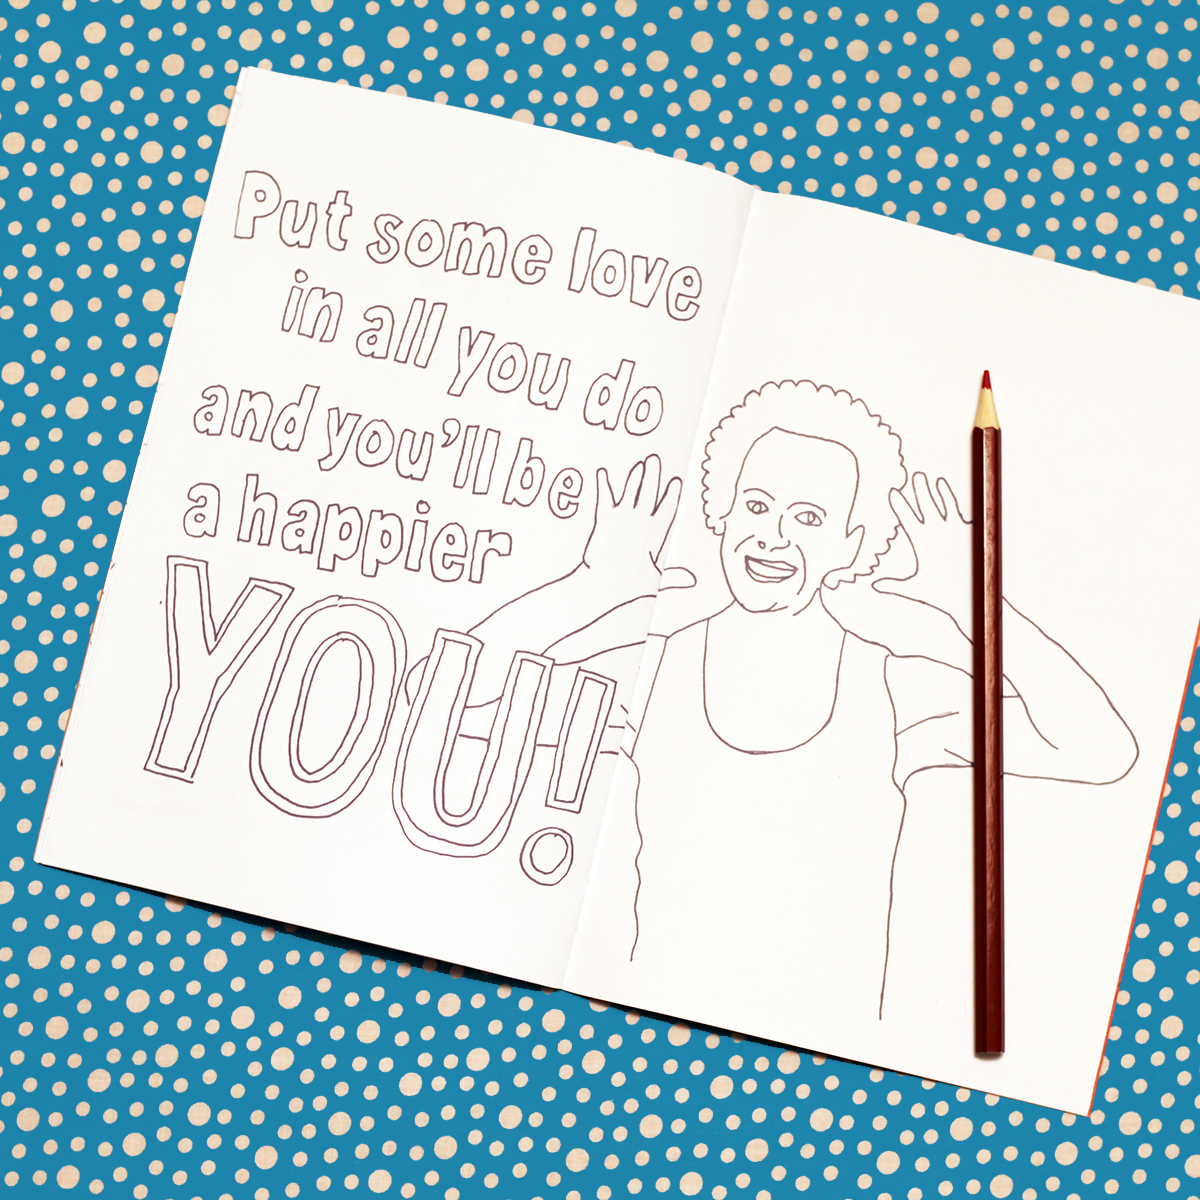 Put some love
in all you do
and you'll be
a happier
YOU!